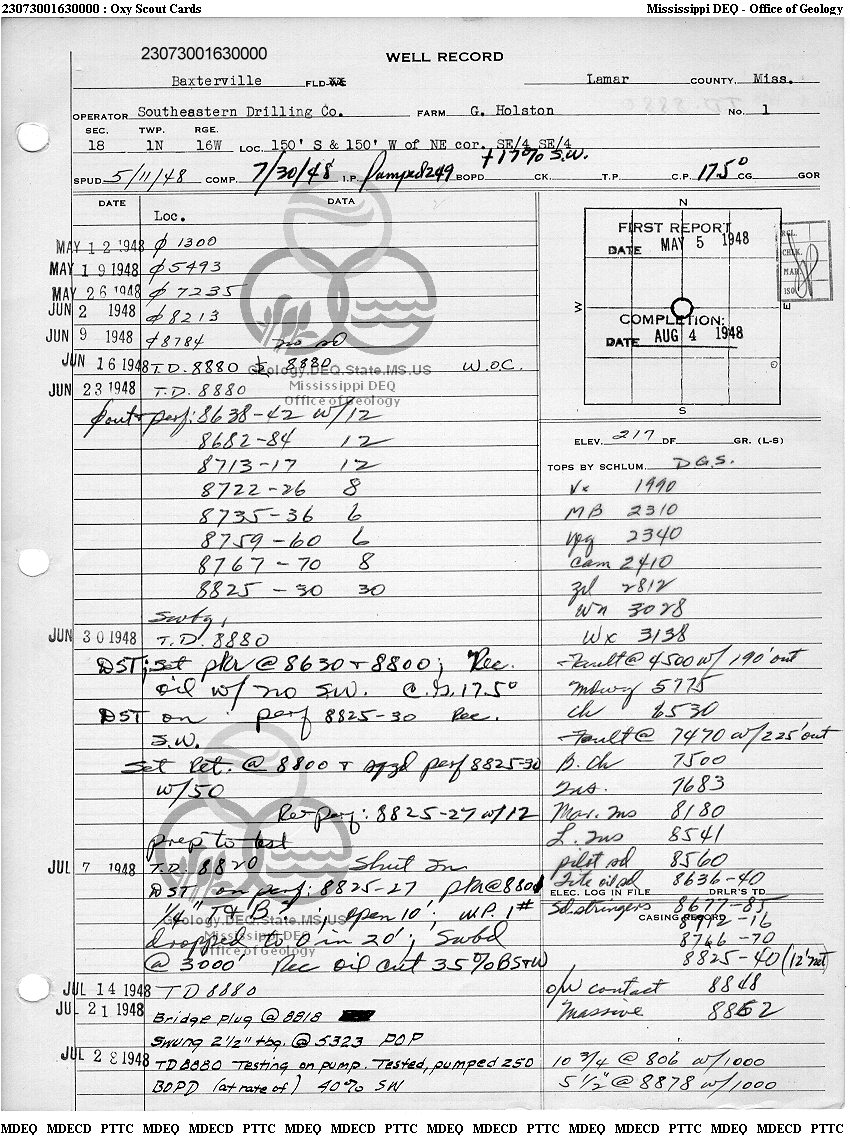 23073001630000 : Oxy Scout Cards
Mississippi DEQ - Office of Geology
23073001630000
WELL RECORD
Baxterville FLD. Lamar COUNTY, Miss.
OPERATOR Southeastern Drilling Co. FARM G. Holston No. 1
SEC. TWP. RGE.
18 1N 16W LOC. 150' S & 150' W of NE cor. SE/4 SE/4
+ 17% S.W.
SPUD 5/11/48 COMP. 7/30/48 I.P. Pumped 249 BOPD. CK. T.P. C.P. 17.5° CG GOR
DATE DATA
Loc.
MAY 12 1948 ϕ 1300
MAY 19 1948 ϕ 5493
MAY 26 1948 ϕ 7235
JUN 2 1948 ϕ 8213
JUN 9 1948 ϕ 8784 no sd
JUN 16 1948 T.D. 8880 8880 W.O.C.
JUN 23 1948 T.D. 8880
Geology.DEQ.State.MS.US
Mississippi DEQ
Office of Geology
perf: 8638-42 w/12
8682-84 12
8713-17 12
8722-26 8
8735-36 6
8759-60 6
8767-70 8
8825-30 30
Swbg,
JUN 30 1948 T.D. 8880
DST; Set pkr @ 8630 + 8800; Rec.
oil w/ no SW. C.G. 17.5°
DST on perf 8825-30 Rec.
S.W.
Set Ret. @ 8800 + sqzd perf 8825-30
w/50
Re-perf: 8825-27 w/12
prep to test
JUL 7 1948 T.D. 8820 Shut In
DST on perf: 8825-27 pkr @ 8800
1/4" T & B ; open 10'; W.P. 1#
dropped to 0 in 20'; Swbd
@ 3000' Rec oil cut 35% BS+W
Geology.DEQ.State.MS.US
Mississippi DEQ
Office of Geology
JUL 14 1948 TD 8880
JUL 21 1948
Bridge plug @ 8818
Swung 2 1/2" tbg. @ 5323 POP
JUL 28 1948 TD 8880 Testing on pump. Tested, pumped 250
BOPD (at rate of) 40% SW
N
FIRST REPORT
DATE MAY 5 1948
W E
COMPLETION:
DATE AUG 4 1948
S
REL.
CHK.
MAP
ISO.
ELEV. 217 DF GR. (L-S)
TOPS BY SCHLUM. D.G.S.
Vx 1990
MB 2310
vpg 2340
cam 2410
zil 2812
Wn 3028
Wx 3138
Fault @ 4500 w/ 190' out
Mdwy 5775
Ck 6530
Fault @ 7470 w/ 225' out
B. Ck 7500
Tus. 7683
Mar. Tus 8180
L. Tus 8541
pilot sd 8560
Tite oil sd 8636-40
ELEC. LOG IN FILE DRLR'S TD
Sd. stringers 8677-85
CASING RECORD
8712-16
8766-70
8825-40 (12' net)
o/w contact 8848
Massive 8852
10 3/4 @ 806 w/1000
5 1/2" @ 8878 w/1000
MDEQ MDECD PTTC MDEQ MDECD PTTC MDEQ MDECD PTTC MDEQ MDECD PTTC MDEQ MDECD PTTC MDEQ MDECD PTTC